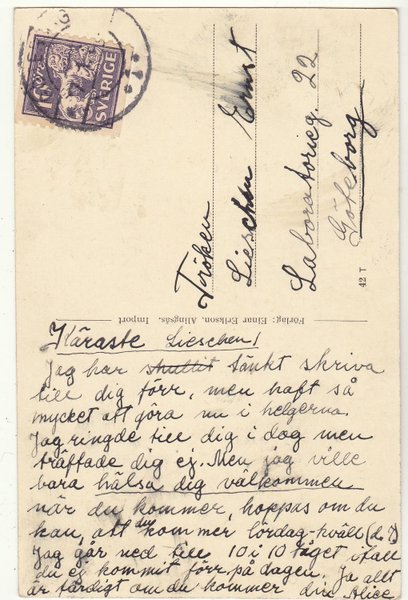 SVERIGE
Fröken
Lieschen Ernst
Laboratorieg. 22
Göteborg
42 T
Förlag: Einar Erikson, Alingsås. Import
Käraste Lieschen!
Jag har tänkt skriva
till dig förr, men haft så
mycket att göra nu i helgerna.
Jag ringde till dig i dag men
träffade dig ej. Men jag ville
bara hälsa dig välkommen
när du kommer, hoppas om du
kan, att du kommer lördag-kväll
Jag går ned till 10 i 10 tåget ifall
du ej kommit förr på dagen. Ja allt
är färdigt om du kommer din Alice